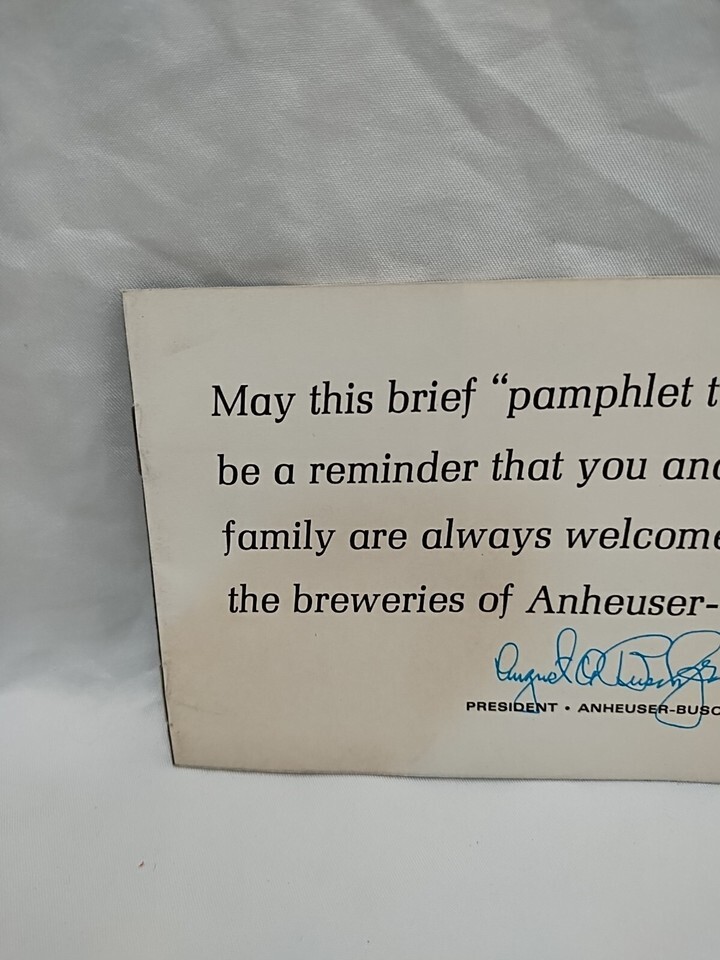 May this brief “pamphlet t
be a reminder that you and
family are always welcome
the breweries of Anheuser-
August A. Busch Jr
PRESIDENT • ANHEUSER-BUSC